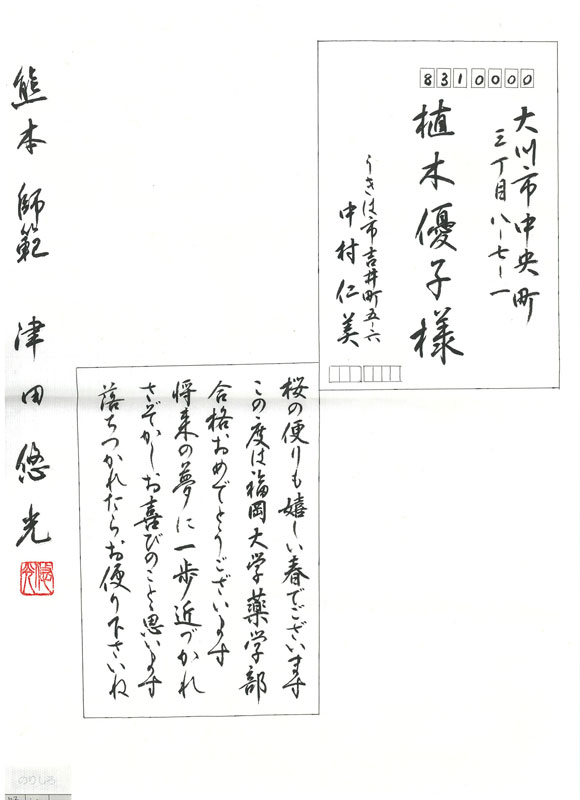 8310000
大川市中央町
三丁目八ー七ー一
植木優子様
うきは市吉井町五ー六
中村仁美
桜の便りも嬉しい春でございます
この度は福岡大学薬学部
合格おめでとうございます
将来の夢に一歩近づかれ
さぞかしお喜びのことゝ思います
落ちつかれたらお便り下さいね
熊本 師範 津田悠光
のりしろ